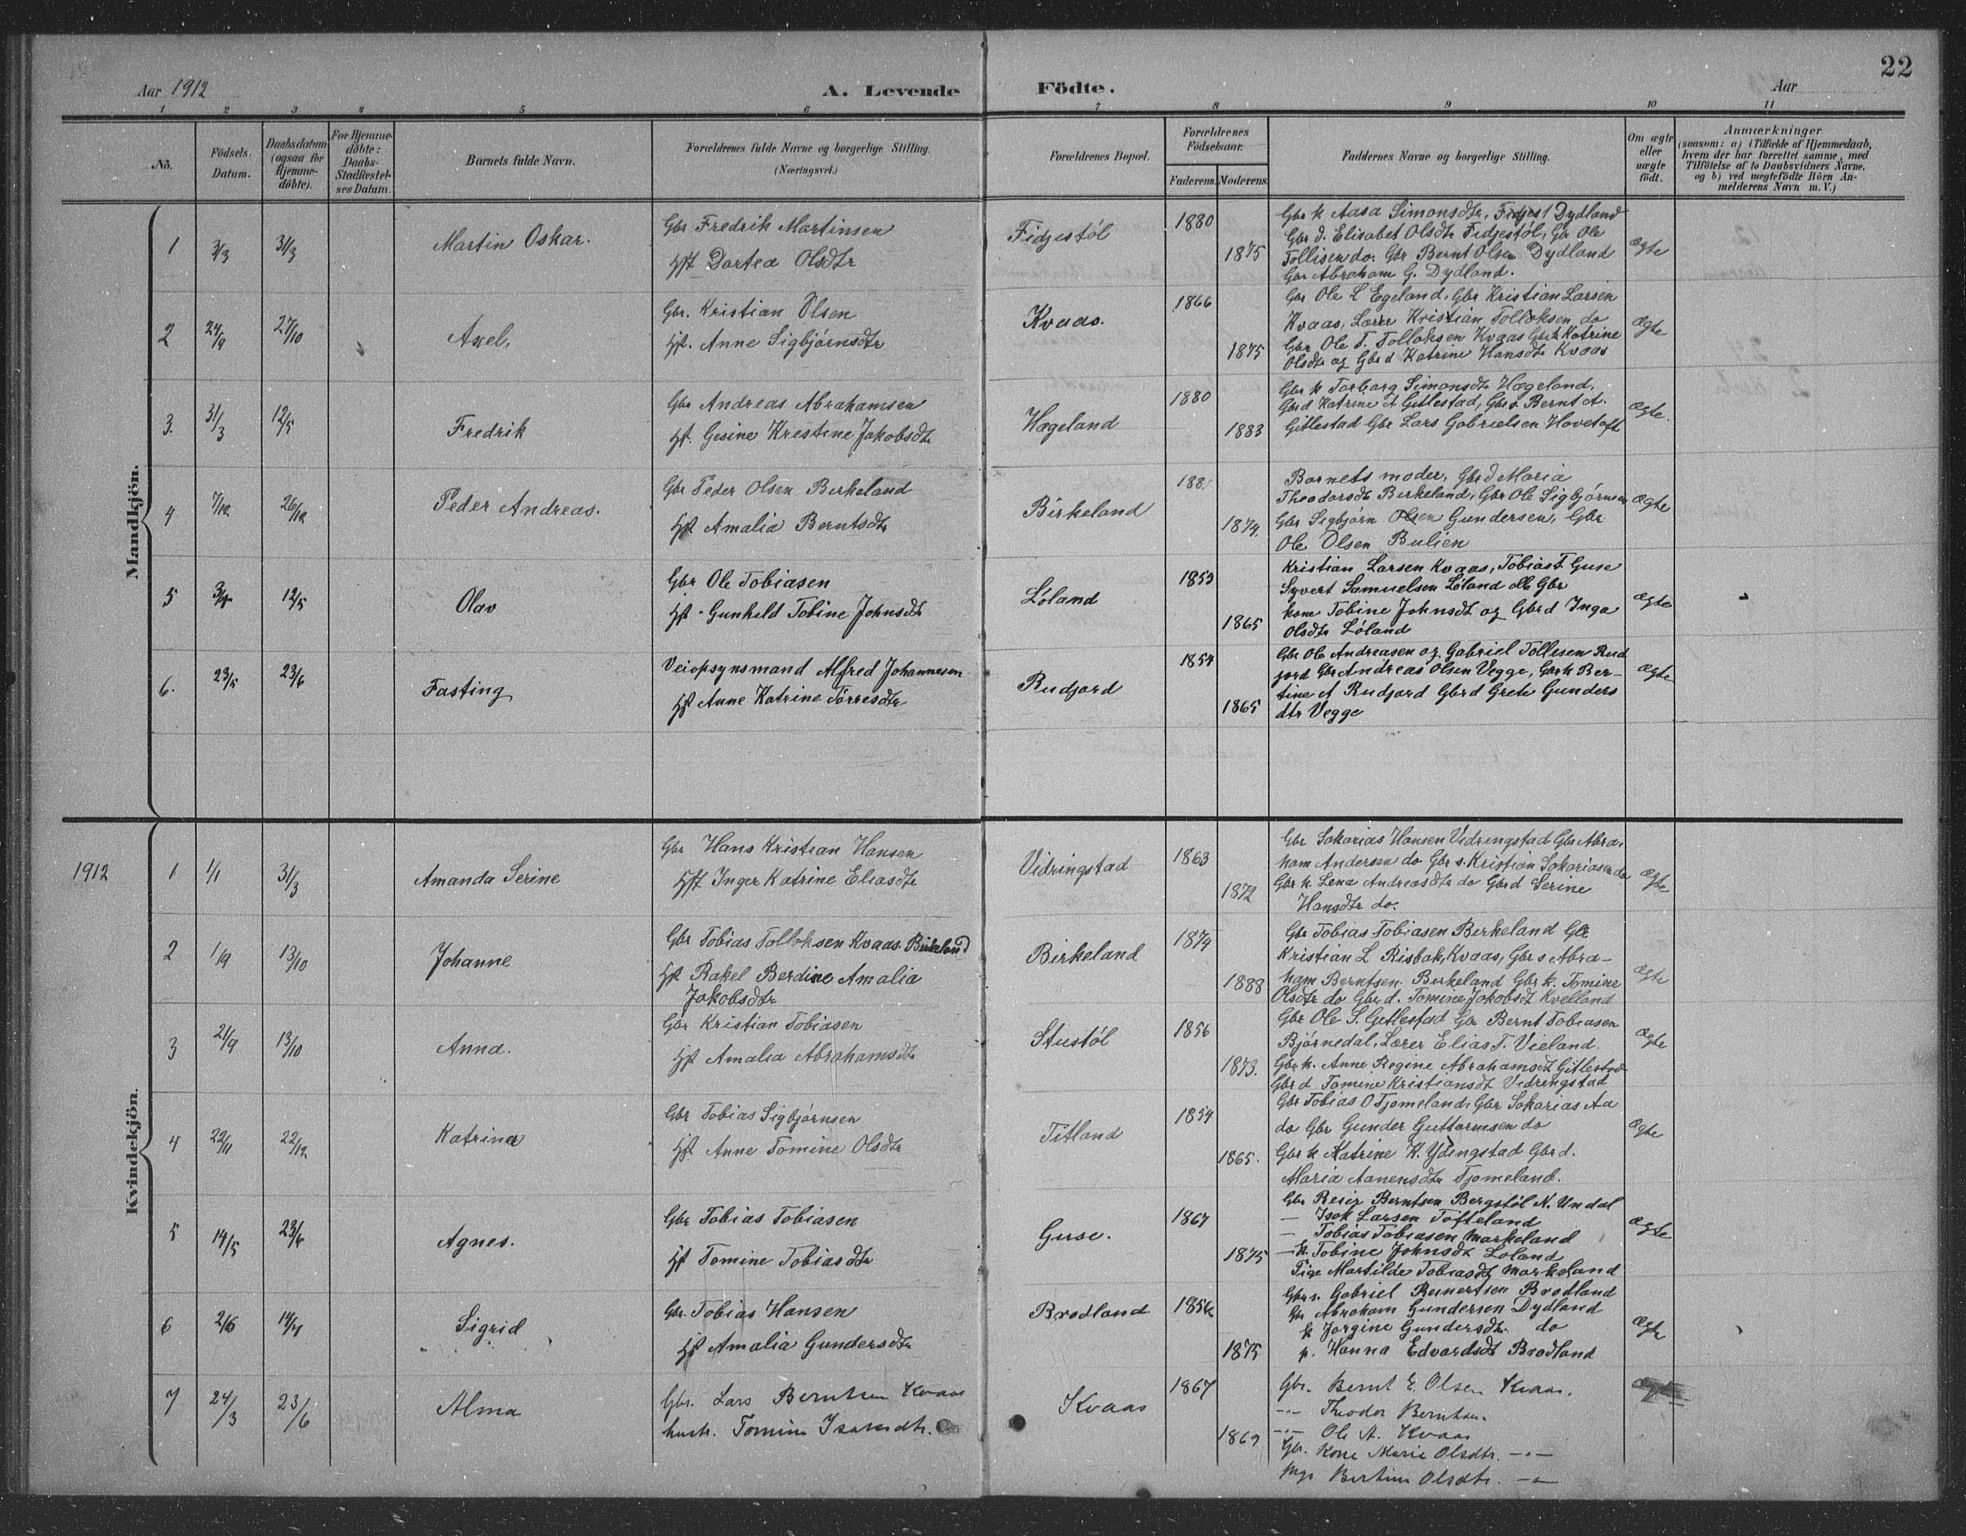 22
Aar 1912
A. Levende Födte.
Aar
1 2 3 4 5 6 7 8 9 10 11
No.
Födsels-Datum.
Daabsdatum (ogsaa for Hjemmedöbte).
For Hjemmedöbte: Daabs-Stadfæstelses Datum.
Barnets fulde Navn.
Forældrenes fulde Navne og borgerlige Stilling. (Næringsvei.)
Forældrenes Bopæl.
Forældrenes Födselsaar.
Faderens. Moderens.
Faddernes Navne og borgerlige Stilling.
Om ægte eller uægte födt.
Anmærkninger
(saasom: a) i Tilfælde af Hjemmedaab, hvem der har forrettet samme, med Tilföielse af to Daabsvidners Navne, og b) ved uægtefödte Börn Anmelderens Navn m. V.)
Mandkjön.
1 3/3 31/3 Martin Oskar.
Gbr Fredrik Martinsen
Hst Dortea Olsdtr
Fidjestøl 1880 1875
Gbr k Aasa Simonsdtr, Fidjest Dydland
Gbr d. Elisabet Olsdtr Fidjestøl, Gbr Ole
Tollisen do. Gbr Bernt Olsen Dydland
Gbr Abraham G. Dydland.
ægte
2 24/9 27/10 Axel.
Gbr. Kristian Olsen
Hst. Anne Sigbjørnsdtr
Kvaas. 1866 1875
Gbr Ole L Egeland, Gbr Kristian Larsen
Kvaas, Lærer Kristian Tolloksen do
Gbr Ole T. Tolloksen Kvaas Gbr k Katrine
Olsdtr og Gbr d Katrine Hansdtr Kvaas
ægte
3. 31/3 12/5 Fredrik
Gbr Andreas Abrahamsen
Hst. Gesine Kristine Jakobsdtr
Hægeland 1880 1883
Gbr k Torborg Simonsdtr Hægeland,
Gbr d Katrine A Gitlestad, Gbr s. Bernt A.
Gitlestad Gbr Lars Gabrielsen Hovetoft
ægte.
4 7/12 26/12 Peder Andreas.
Gbr Peder Olsen Birkeland
Hst Amalia Berntsdtr
Birkeland 188 1874.
Barnets moder, Gbr d Maria
Theodorsdtr Birkeland, Gbr Ole Sigbjørnsen
Gbr Sigbjørn Olsen Gundersen, Gbr
Ole Olsen Bulien
ægte
5 3/4 12/5 Olav
Gbr Ole Tobiasen
Hst. Gunhild Tobine Johnsdtr
Løland 1853 1865
Kristian Larsen Kvaas, Tobias T Guse
Syvert Samuelsen Løland alle Gbr
kone Tobine Johnsdtr og Gbr d Inga
Olsdtr Løland
ægte
6. 23/5 23/6 Fasting
Veiopsynsmand Alfred Johannesen
Hst Anne Katrine Tørresdtr
Rudjord 1854 1865
Gbr Ole Andreasen og Gabriel Tollisen Rud
jord Gbr Andreas Olsen Vegge, Gbr k Ber-
tine A Rudjord Gbr d Grete Gunders
dtr Vegge
ægte
1912
Kvindekjön.
1 1/1 31/3 Amanda Serine
Gbr Hans Kristian Hansen
Hst Inger Katrine Eliasdtr
Vidringstad 1863 1872
Gbr Sakarias Hansen Vidringstad Gbr Abra-
ham Andersen do Gbr s. Kristian Sakariasen do
Gbr k. Lena Andreasdtr do Gbr d Serine
Hansdtr do.
ægte
2 1/9 13/10 Johanne
Gbr Tobias Tolloksen Kvaas Birkeland
Hst Rakel Berdine Amalia
Jakobsdtr
Birkeland 1874 1888
Gbr Tobias Tobiasen Birkeland Gbr
Kristian L Risbak, Kvaas, Gbr s Abra-
ham Berntsen Birkeland Gbr k. Tomine
Olsdtr do Gbr d. Tomine Jakobsdt Kvelland
ægte
3 21/9 13/10 Anna.
Gbr Kristian Tobiasen
Hst Amalia Abrahamsdtr
Stustøl 1856 1873.
Gbr Ole S. Gitlestad Gbr Bernt Tobiasen
Bjørnedal, Lærer Elias T. Vieland.
Gbr k. Anne Regine Abrahamsdt Gitlestad
Gbr d Tomine Kristiansdt Vidringstad
ægte
4 22/11 22/12 Katrine
Gbr Tobias Sigbjørnsen
Hst. Anne Tomine Olsdtr
Titland 1854 1865.
Gbr Tobias O Tjomeland, Gbr Sakarias Aa
do Gbr Gunder Guttormsen do
Gbr k Katrine K. Ydingstad Gbr d.
Maria Aanensdtr Tjomeland.
ægte
5 14/5 23/6 Agnes.
Gbr Tobias Tobiasen
Hst Tomine Tobiasdtr
Guse. 1867 1875
Gbr Reier Berntsen Bergstøl N. Undal
— Isak Larsen Tofteland
— Tobias Tobiasen Markeland
— k. Tobine Johnsdt Løland
Pige Martilde Tobiasdt Markeland
ægte
6 2/6 14/7 Sigrid
Gbr. Tobias Hansen
Hst Amalia Gundersdtr
Brodland 1854 1875
Gbr s. Gabriel Reinertsen Brodland
Gbr Abraham Gundersen Dydland
k Jorgine Gundersdtr. do
p. Hanna Edvardsdt Brodland
ægte
7 24/3 23/6 Alma
Gbr. Lars Berntsen Kvaas
hustr. Tomine Isaksdtr.
Kvaas 1867 1869
Gbr. Bernt E. Olsen Kvaas.
-"- Theodor Berntsen.
-"- Ole A. Kvaas
Gbr. Kone Marie Olsdtr. -"-
Pige Bertine Olsdtr. -"-
ægte